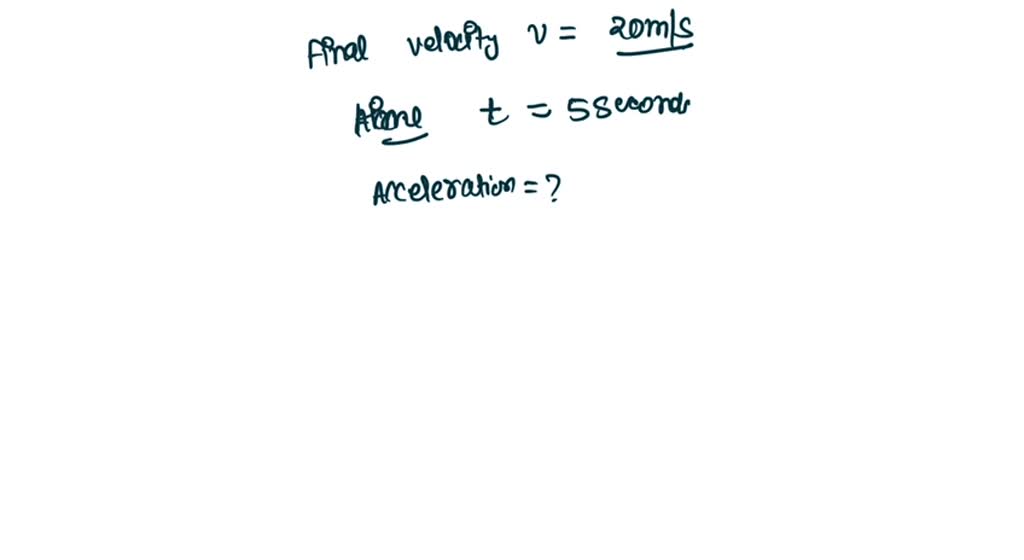 Final velocity v = 20m/s
t = 5 seconds
Acceleration = ?